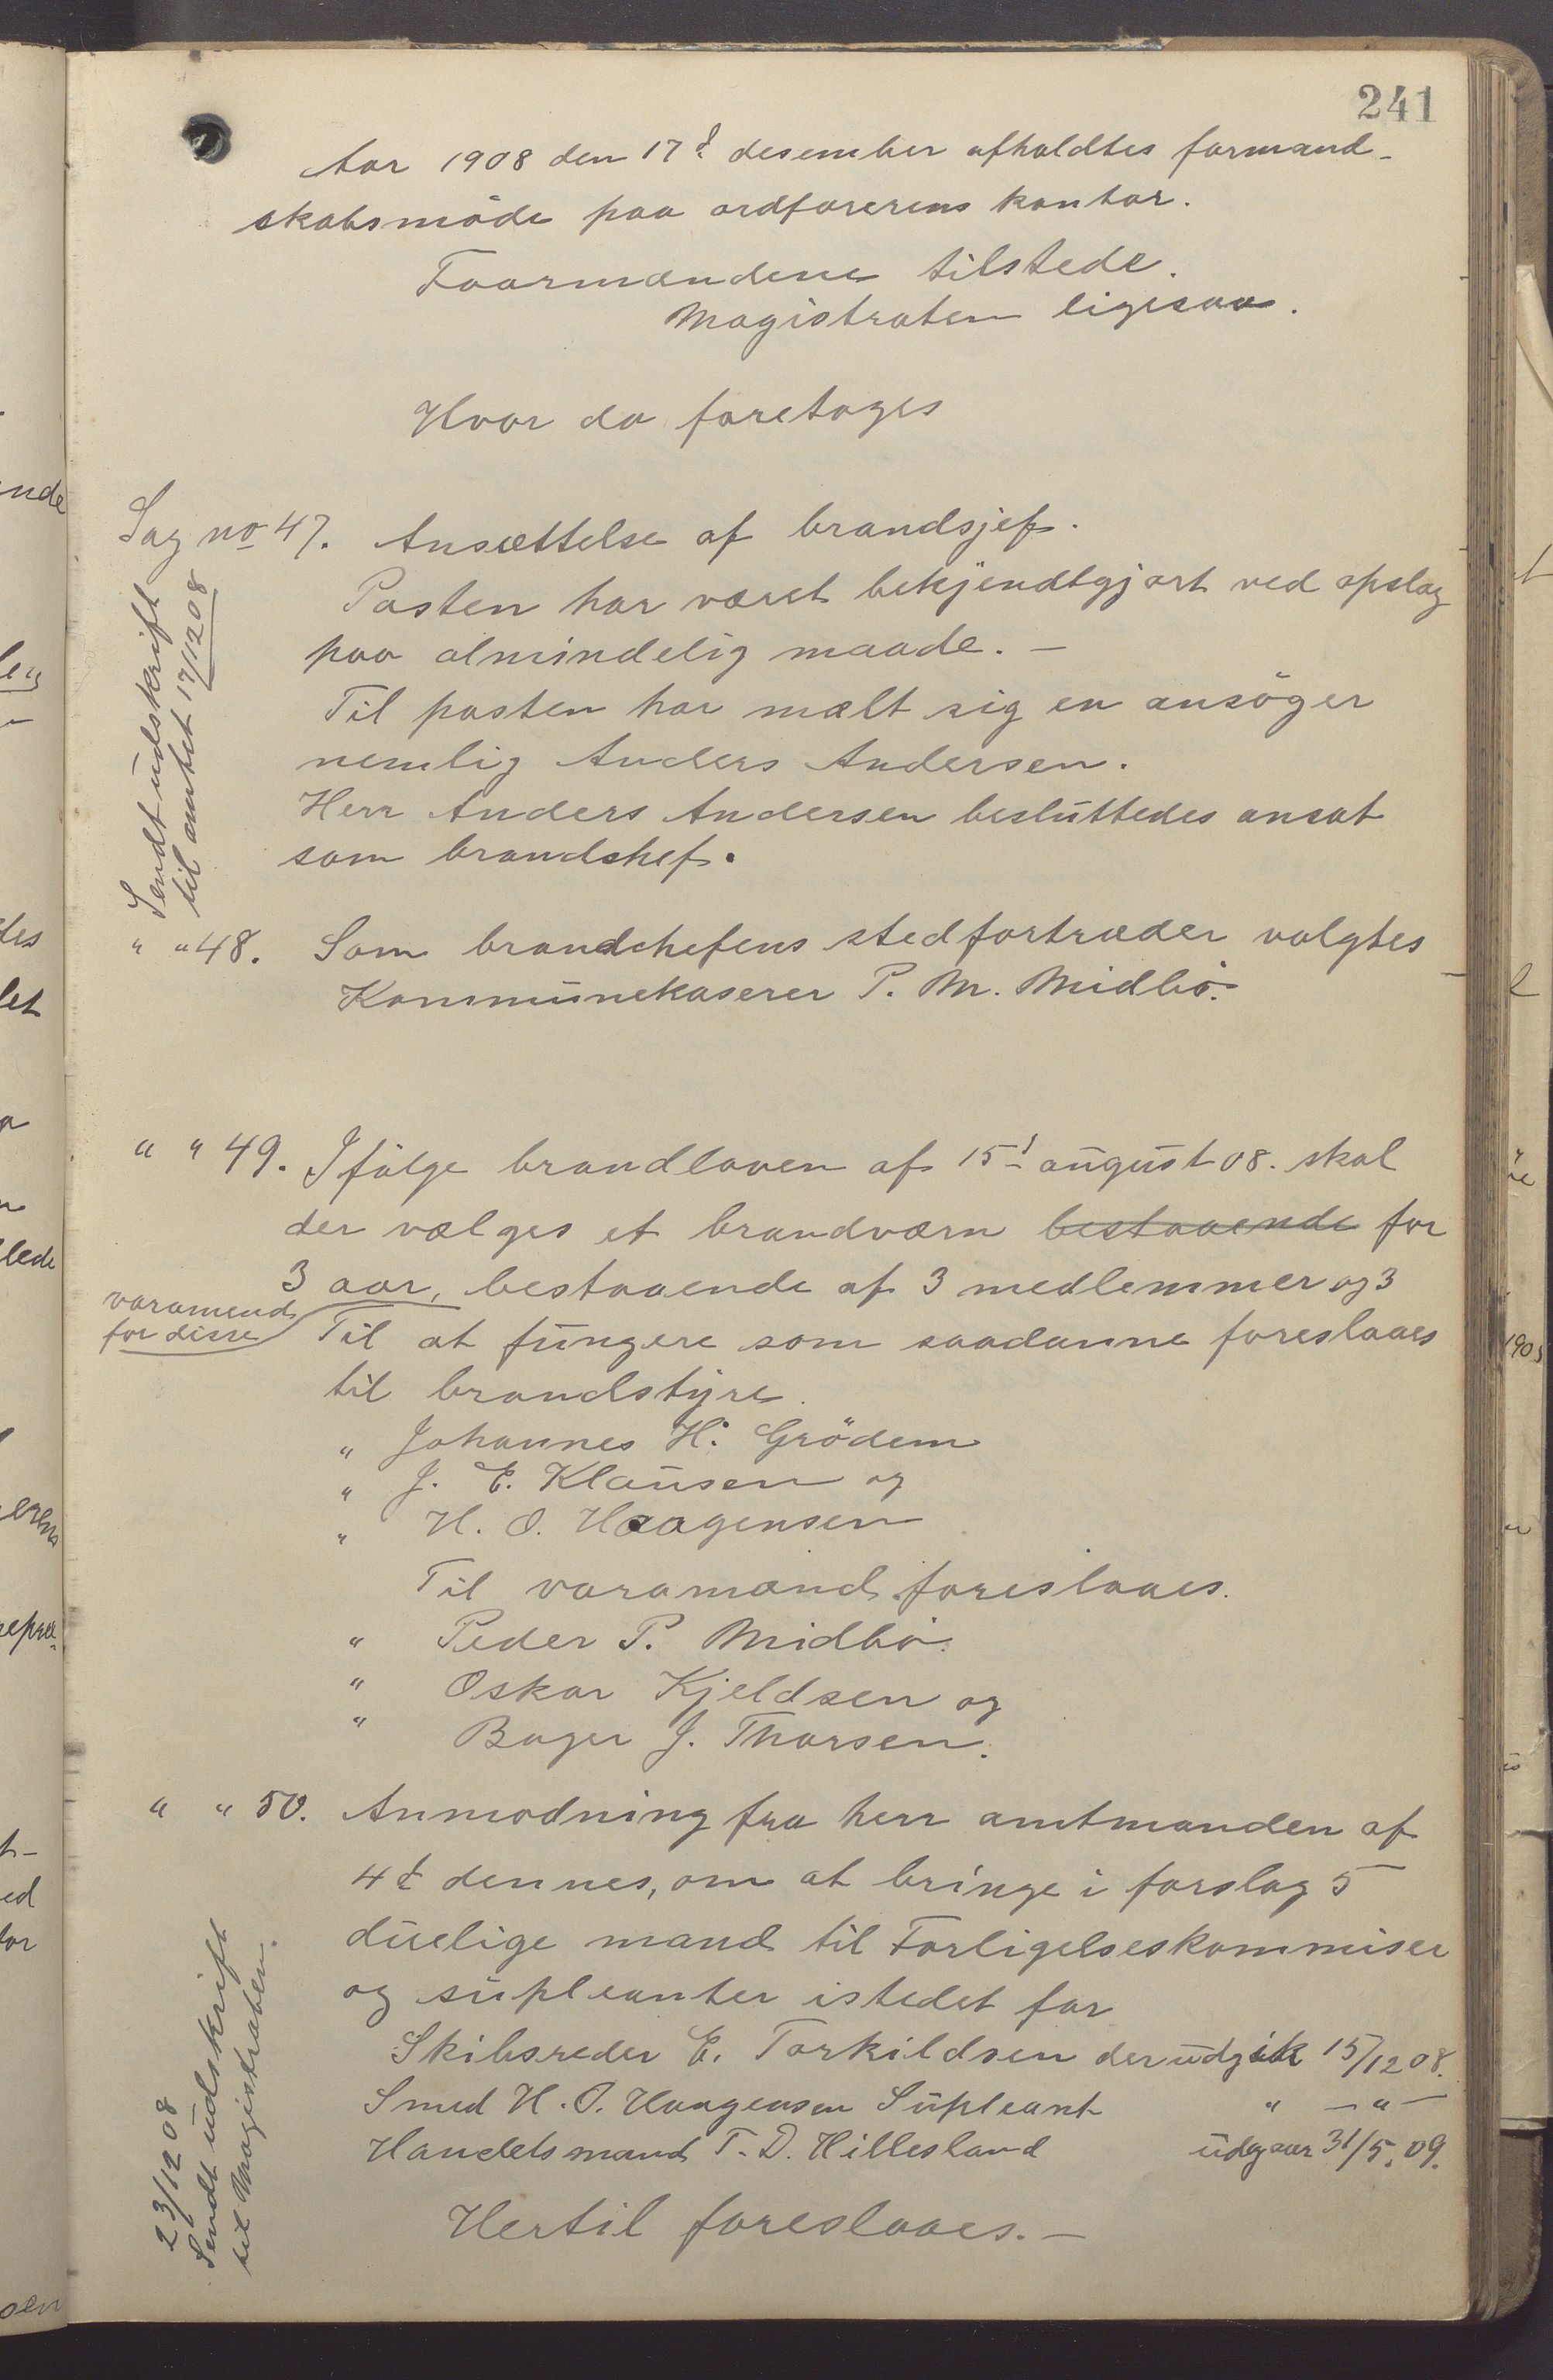 241
Aar 1908 den 17d. desember afholdtes formand-
skabsmöde paa ordförerens kontor.
Foormændene tilstede.
Magistraten ligesaa.
Hvor da foretoges
Sag no 47. Ansættelse af brandsjef.
Posten har været bekjendtgjort ved opslag
paa almindelig maade. —
Til posten har mælt sig en ansöger
nemlig Anders Andersen.
Herr Anders Andersen besluttedes ansat
som brandshef.
Sendt udskrift
til amtet 17/12 08
" " 48. Som brandchefens stedfortræder valgtes
Kommunekaserer P. M. Midbö.
" " 49. Ifölge brandloven af 15d august 08. skal
der vælges et brandværn bestaaende for
3 aar, bestaaende af 3 medlemmer og 3
varamend
for disse
Til at fungere som saadanne foreslaaes
til brandstyre.
" Johannes H. Grödem
" J. E. Klausen og
" H. O. Haagensen
Til varamænd foreslaaes.
" Peder P. Midbö.
" Oskar Kjeldsen og
" Bager J. Thorsen.
" " 50. Anmodning fra herr amtmanden af
4d. dennes, om at bringe i forslag 5
duelige mænd til Forligelseskommiser
og supleanter istedet for
Skibsreder E. Torkildsen der udgik 15/12 08.
Smed H. O. Haagensen Supleant " — " —
Handelsmand T. D. Hillesland udgaar 31/5. 09.
Hertil foreslaaes. —
23/12 08
Sendt udskrift
til Magistraten.